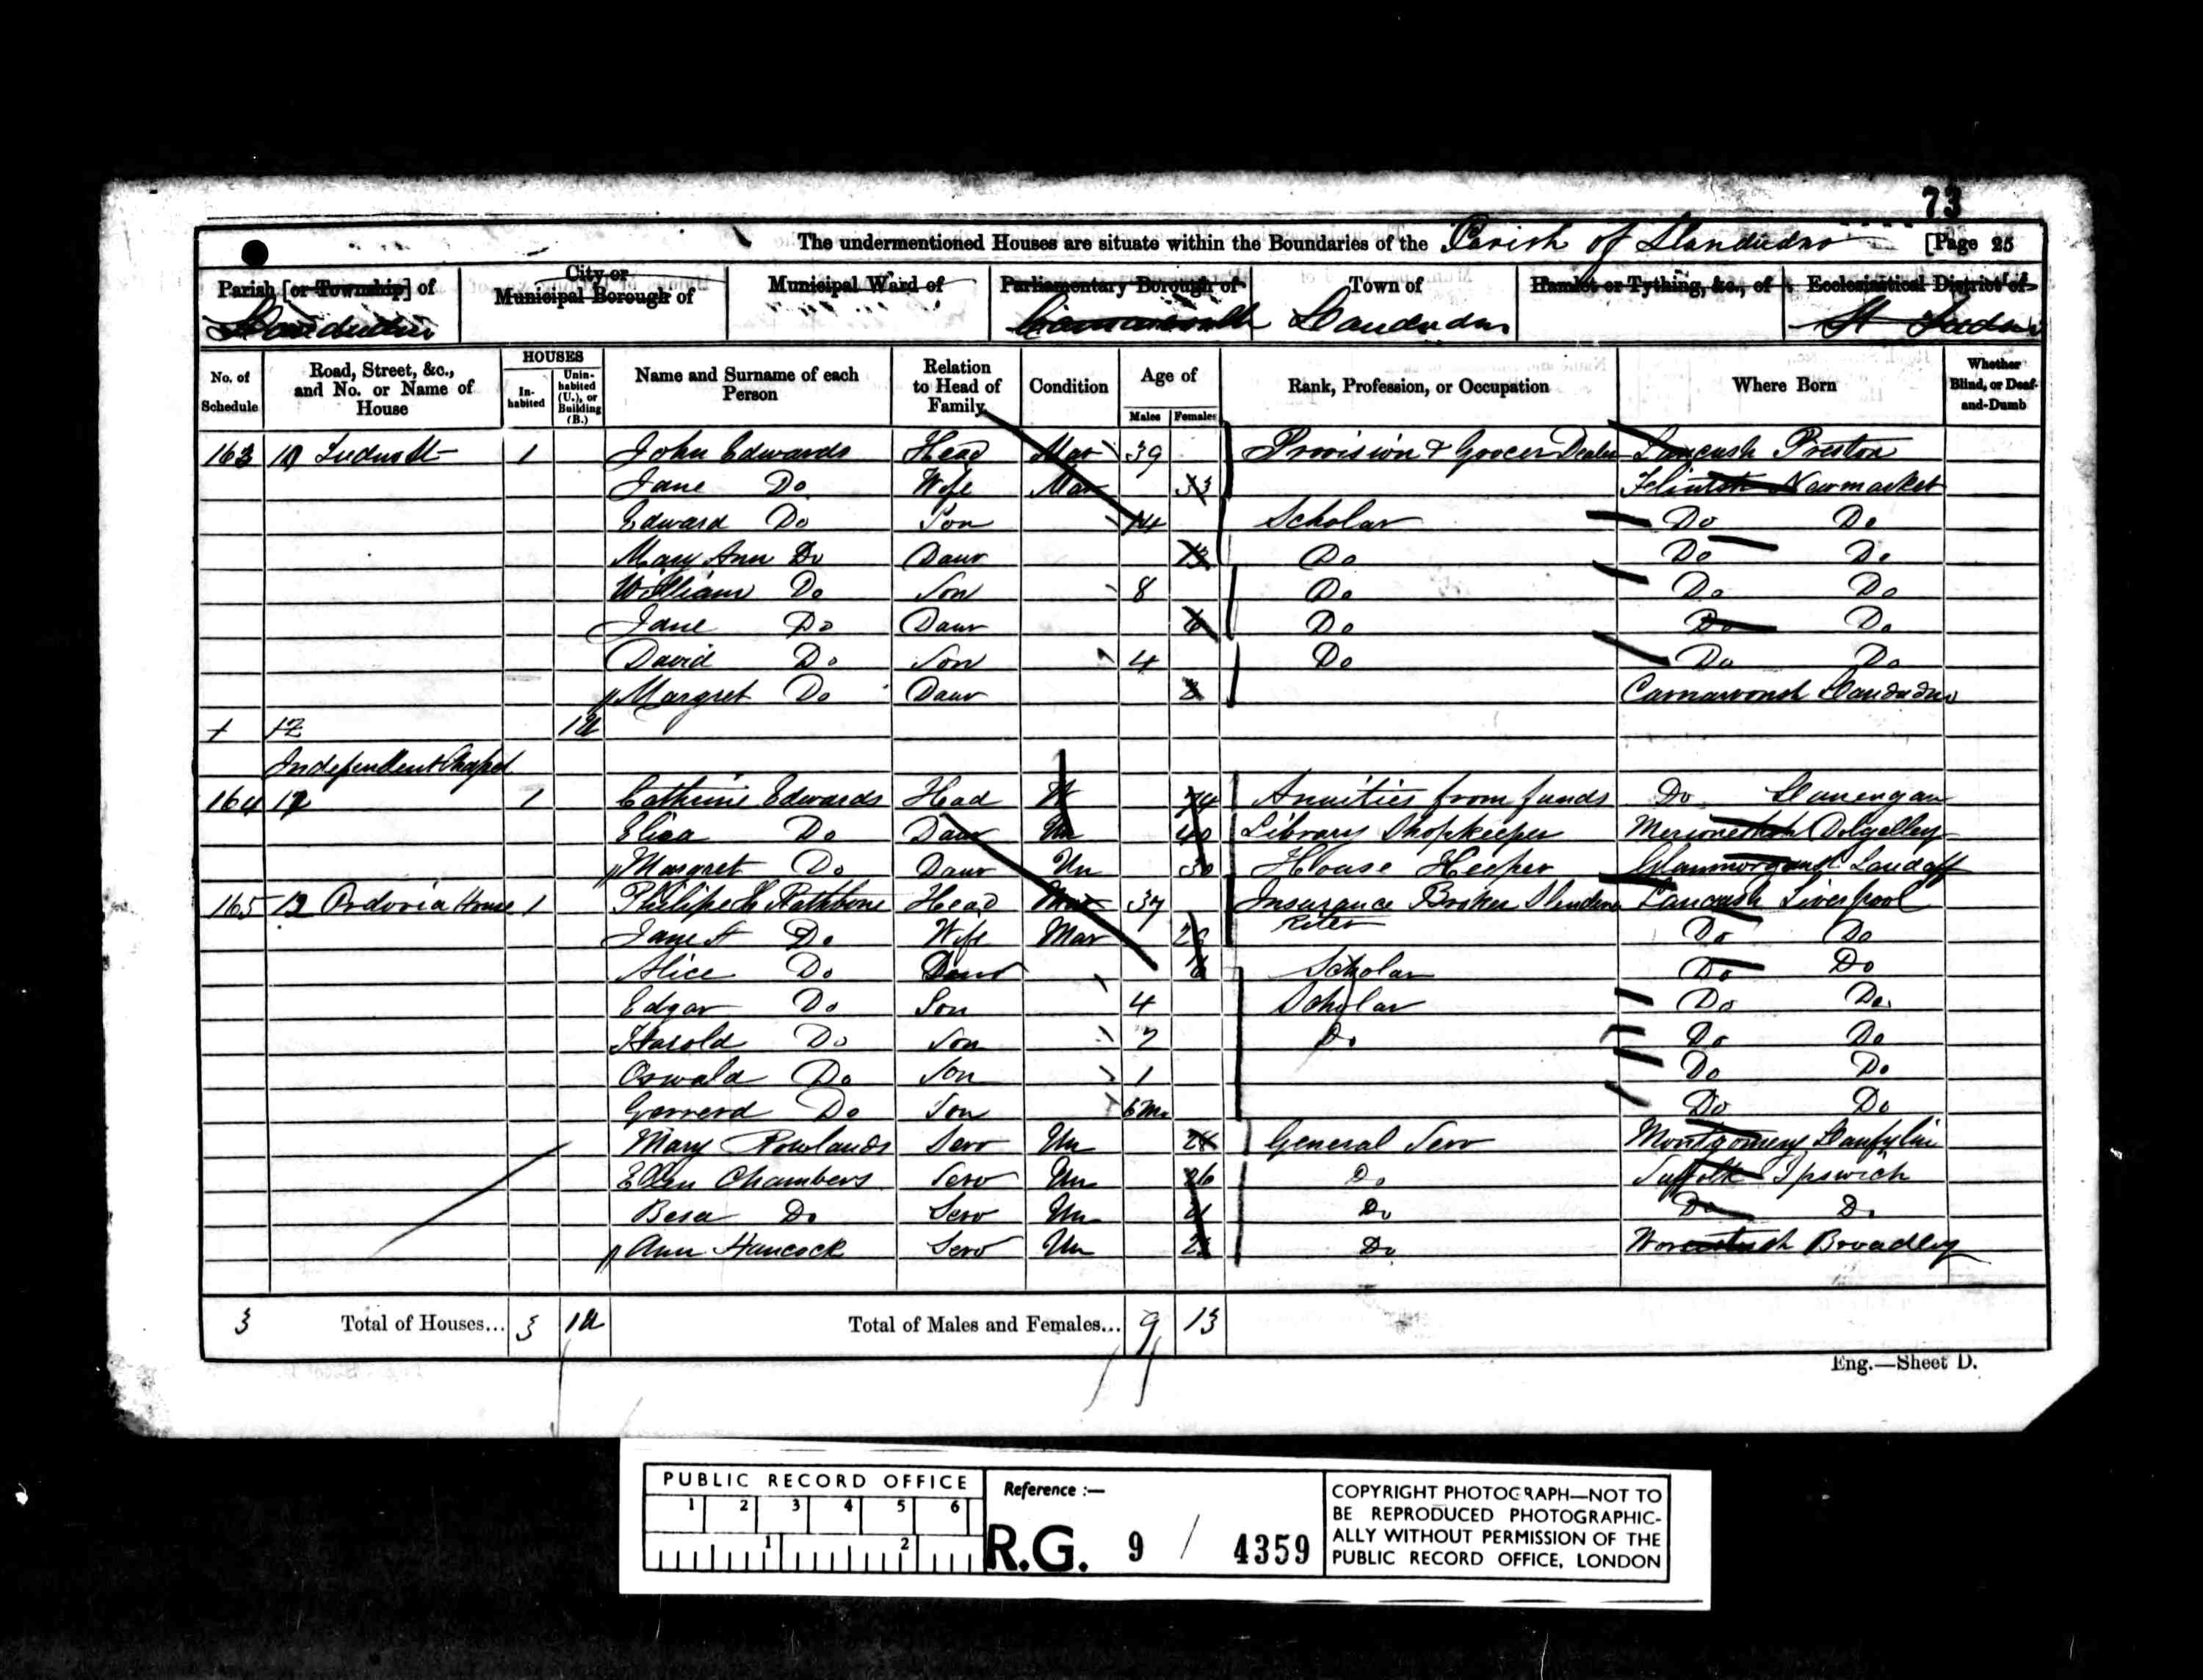 73
The undermentioned Houses are situate within the Boundaries of the Parish of Llandudno [Page 25
Parish [or Township] of Llandudno
City or Municipal Borough of
Municipal Ward of
Parliamentary Borough of
Town of Llandudno
Hamlet or Tything, &c., of
Ecclesiastical District of St Tudno
No. of Schedule
Road, Street, &c., and No. or Name of House
HOUSES
In-habited
Unin-habited (U.), or Building (B.)
Name and Surname of each Person
Relation to Head of Family
Condition
Age of
Males
Females
Rank, Profession, or Occupation
Where Born
Whether Blind, or Deaf-and-Dumb
163 Tudno St 1 John Edwards Head Mar 39 Provision & Grocer Dealer Lancash Preston
Jane Do Wife Mar 33 Flintsh Newmarket
Edward Do Son 14 Scholar Do Do
Mary Ann Do Daur 13 Do Do Do
William Do Son 8 Do Do Do
Jane Do Daur 6 Do Do Do
David Do Son 4 Do Do Do
Margret Do Daur Carnarvonsh Llandudno
12 1U
Independent Chapel
164 1 Catherine Edwards Head W 74 Anuities from funds Do Llanengan
Eliza Do Daur Un 40 Library Shopkeeper Merionethsh Dolgelley
Margret Do Daur Un 30 House Keeper Glanmorgansh Landaff
165 Ordovia House 1 Philipe H Rathbone Head Mar 37 Insurance Broker Lancash Liverpool
Jane S Do Wife Mar 29 Do Do
Alice Do Daur 6 Scholar Do Do
Edgar Do Son 4 Scholar Do Do
Harold Do Son 2 Do Do Do
Oswald Do Son 1 Do Do
Gerrerd Do Son 6 Mo Do Do
Mary Rowlands Serv Un General Serv Montgomery Llanfylin
Ellen Chambers Serv Un 26 Do Suffolk Ipswich
Besa Do Serv Un Do Do Do
Ann Hancock Serv Un Do Worcestersh Broadley
3 Total of Houses... 3 1U Total of Males and Females... 9 13
Eng.—Sheet D.
PUBLIC RECORD OFFICE
1 2 3 4 5 6
1 2
Reference :—
R.G. 9 / 4359
COPYRIGHT PHOTOGRAPH—NOT TO
BE REPRODUCED PHOTOGRAPHIC-
ALLY WITHOUT PERMISSION OF THE
PUBLIC RECORD OFFICE, LONDON